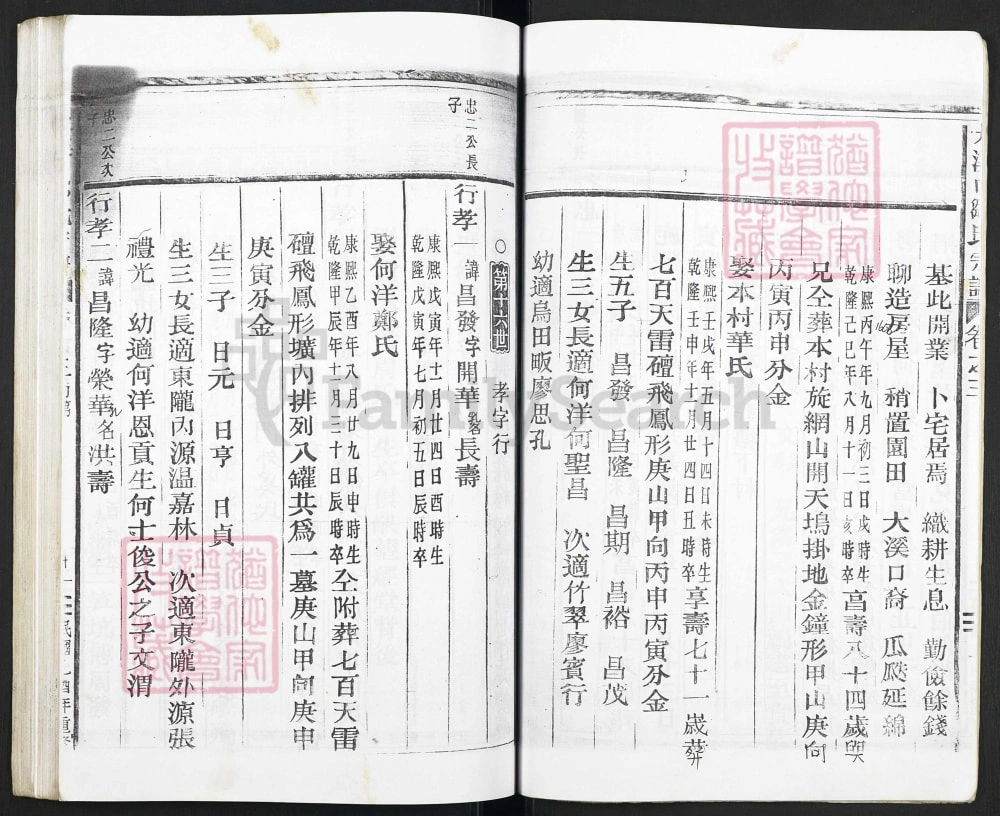 基此開業　卜宅居焉　織耕生息　勤儉餘錢
聊造房屋　稍置園田　大溪口裔　瓜瓞延綿
康熙丙午年九月初三日戌時生
乾隆己巳年八月十一日亥時卒
享壽八十四歲與
兄仝葬本村旋網山開天塢掛地金鐘形甲山庚向
丙寅丙申分金
娶本村華氏
康熙壬戌年五月十四日未時生
乾隆壬申年十月廿四日丑時卒
享壽七十一歲葬
七百天雷礑飛鳳形庚山甲向丙申丙寅分金
生五子　昌發　昌隆　昌期　昌裕　昌茂
生三女長適何洋何聖昌　次適竹翠廖賓行
幼適烏田畈廖思孔
第十六世
孝字行
忠二公長子
行孝一諱昌發字開華乳名長壽
康熙戊寅年十二月廿四日酉時生
乾隆戊寅年七月初五日辰時卒
娶何洋鄭氏
康熙乙酉年八月廿九日申時生
乾隆甲辰年十月二十日辰時卒
仝附葬七百天雷
礑飛鳳形壙內排列八罐共爲一墓庚山甲向庚申
庚寅分金
生三子　日元　日亨　日貞
生三女長適東隴內源溫嘉林　次適東隴外源張
禮光　幼適何洋恩貢生何士俊公之子文渭
忠二公次子
行孝二諱昌隆字榮華乳名洪壽
FamilySearch